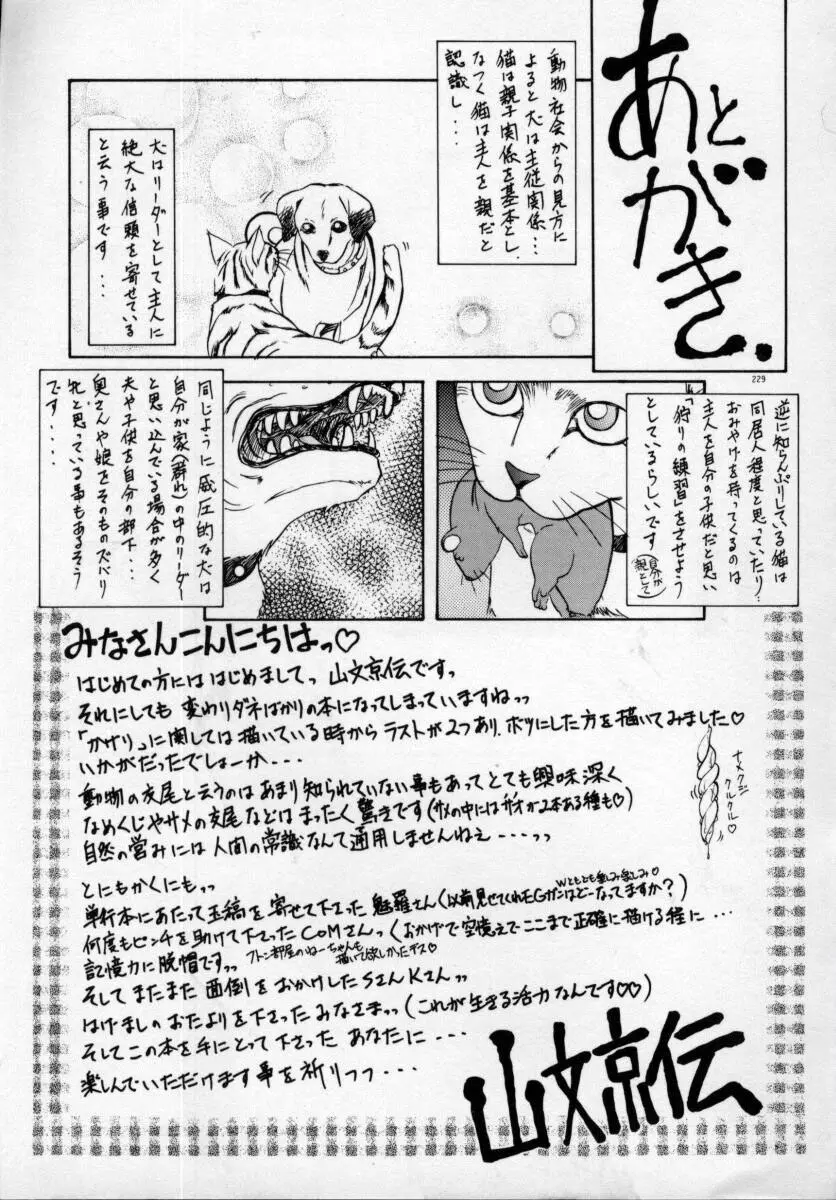 あとがき.
動物社会からの見方に
よると犬は主従関係…
猫は親子関係を基本とし、
なつく猫は主人を親だと
認識し...
犬はリーダーとして主人に
絶大な信頼を寄せている
と云う事です...
229
逆に知らんぷりしている猫は
同居人程度と思っていたり…
おみやげを持ってくるのは
主人を自分の子供だと思い
「狩りの練習」をさせよう
としているらしいです
(自分が親として)
同じように威圧的な犬は
自分が家(群れ)の中のリーダー
と思い込んでいる場合が多く
夫や子供を自分の部下...
奥さんや娘をそのものズバリ
牝と思っている事もあるそう
です....
みなさんこんにちはっ♡
はじめての方には はじめましてっ 山文京伝ですっ
それにしても 変わりダネばかりの本になってしまっていますねっっ
「かげり」に関しては描いている時から ラストが2つあり、ボツにした方を描いてみました♡
いかがだったでしょーか...
動物の交尾と云うのは あまり知られていない事もあって とても興味深く
なめくじやサメの交尾などは まったく驚きです(サメの中にはが2本ある種も♡)
自然の営みには 人間の常識なんて通用しませんねえ ---っっ
ナメクジ
クルクル♡
とにもかくにもっっ
単行本にあたって玉稿を寄せて下さった 魅羅さん(以前見せてくれたEGガンはどーなってますか?)
Wともとも楽しみ楽しみ♡
何度もピンチを助けて下さったCOMさんっ(おかげで空憶えでここまで正確に描ける程に...
記憶力に脱帽ですっっ
フトン部屋のねーちゃんも
描いて欲しかったデス♡
そして またまた 面倒をおかけしたSさんKさんっっ
はげましのおたよりを下さったみなさまっっ(これが生きる活力なんです♡♡)
そしてこの本を手にとって下さった あなたに ---
楽しんでいただけます事を祈りつつ...
山文京伝